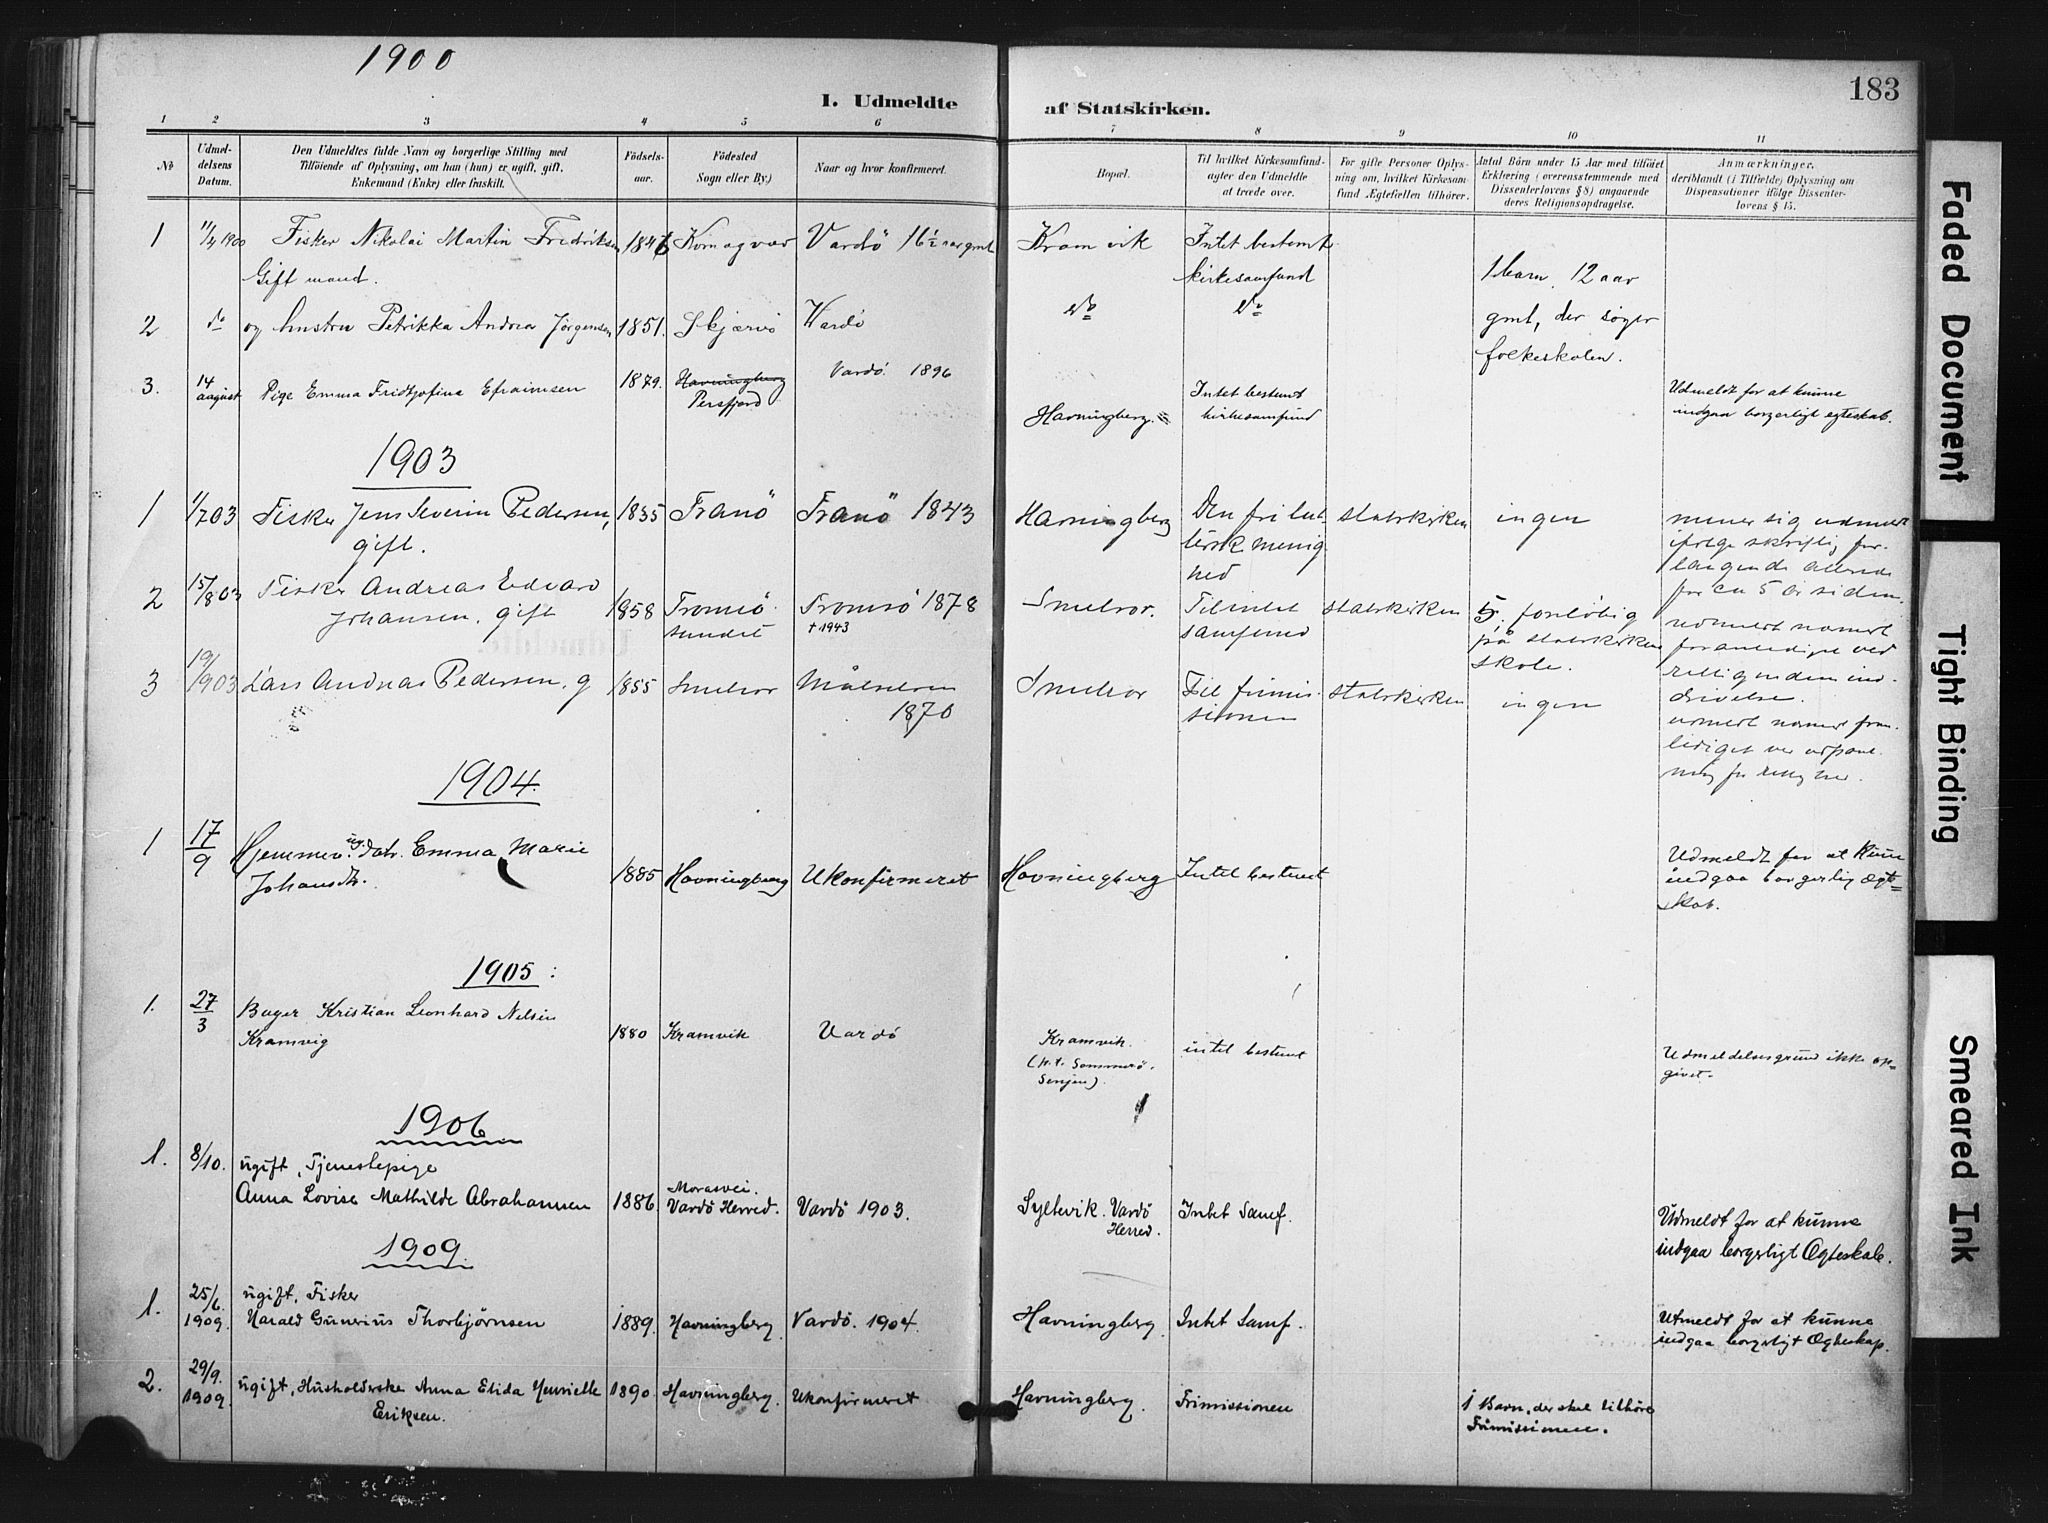 1900
183
I. Udmeldte af Statskirken.
1 2 3 4 5 6 7 8 9 10 11
№
Udmel-
delsens
Datum.
Den Udmeldtes fulde Navn og borgerlige Stilling med
Tilföiende af Oplysning, om han (hun) er ugift, gift,
Enkemand (Enke) eller fraskilt.
Födsels-
aar.
Födested
Sogn eller By.)
Naar og hvor konfirmeret.
Bopæl.
Til hvilket Kirkesamfund
agter den Udmeldte
at træde over.
For gifte Personer Oplys-
ning om, hvilket Kirkesam-
fund Ægtefællen tilhörer.
Antal Börn under 15 Aar med tilföiet
Erklæring (overensstemmende med
Dissenterlovens § 8) angaaende
deres Religionsopdragelse.
Anmærkninger,
deriblandt (i Tilfælde) Oplysning om
Dispensationer ifölge Dissenter-
lovens § 15.
1 11/4 1900 Fisker Nikolai Martin Fredriksen 1846 Komagvær Vardö 16½ aar gmt Kramvik Intet bestemt
Gift mand. kirkesamfund 1 barn, 12 aar
2 do og hustru Petrikka Andrea Jørgensen 1851. Skjærvö Vardö do do gmt, der søger
folkeskolen.
3. 14 august Pige Emma Fridtjofine Efraimsen 1879. Havningberg Vardö. 1896 Intet bestemt Udmeldt for at kunne
Persfjord Havningberg. kirkesamfund indgaa borgerligt egteskab.
1903
1 1/7 03 Fisker Jens Severin Pedersen, 1835 Tranö Tranö 1843 Havningberg Den fri lut- statskirken ingen mener sig udmeldt
gift. tersk menig ifølge skriftlig for-
hed langende allerede
for ca 5 år siden.
2 15/8 03 Fisker Andreas Edvard
Johansen, gift 1858 Tromsö- Tromsö 1878 Smelror. Til intet statskirken 5, foreløbig
sundet † 1943 samfund på statskirkens
skole.
3 19/9 03 Lars Andreas Pedersen, g 1855 Smelror Målselven Smelror Til frimis- statskirken ingen
1870 sionen
1904.
1 17/9 Hjemmev. ug. datr. Emma Marie Udmeldt for at kune
Johansdtr. 1885 Havningberg Ukonfirmeret Havningberg Intet bestemt indgaa borgerlig ægte-
skab.
1905:
1. 27/3 Bager Kristian Leonhard Nelsen
Kramvig 1880 Kramvik Vardö Kramvik. intet bestemt
(p.t. Sommerö, Udmeldelsesgrund ikke op-
Senjen). givet.
1906
1. 8/10. ugift, Tjenestepige
Anna Lovise Mathilde Abrahamsen 1886 Vardö Herred. Vardö 1903. Syltevik. Vardö Intet Samf. Udmeldt for at kunne
Herred. indgaa borgerligt Ægteskab.
1909.
1. 25/6. ugift, Fisker
1909. Harald Gunerius Thorbjørnsen 1889. Havningberg. Vardö. 1904. Havningberg. Intet Samf. Utmeldt for at kunne
indgaa borgerligt Ægteskap.
2. 29/9. 1909. ugift, Husholderske Anna Elida Henriette 1890. Havningberg. Ukonfirmeret Havningberg. Frimissionen 1 Barn, der skal tilhöre
Eriksen. Frimissionen.
Faded Document
Tight Binding
Smeared Ink